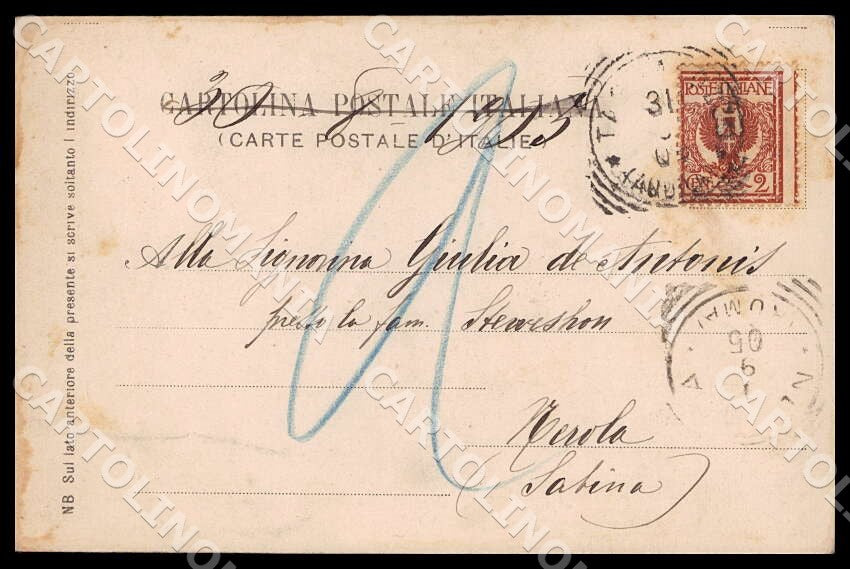 CARTOLINA POSTALE ITALIANA
30 8 905
(CARTE POSTALE D'ITALIE)
POSTE ITALIANE
2
31
05
Alla Signorina Giulia de Antonis
presso la fam.
Nerola
(Sabina)
05
9
1
NB Sul lato anteriore della presente si scrive soltanto l'indirizzo.
CARTOLINOMANIA